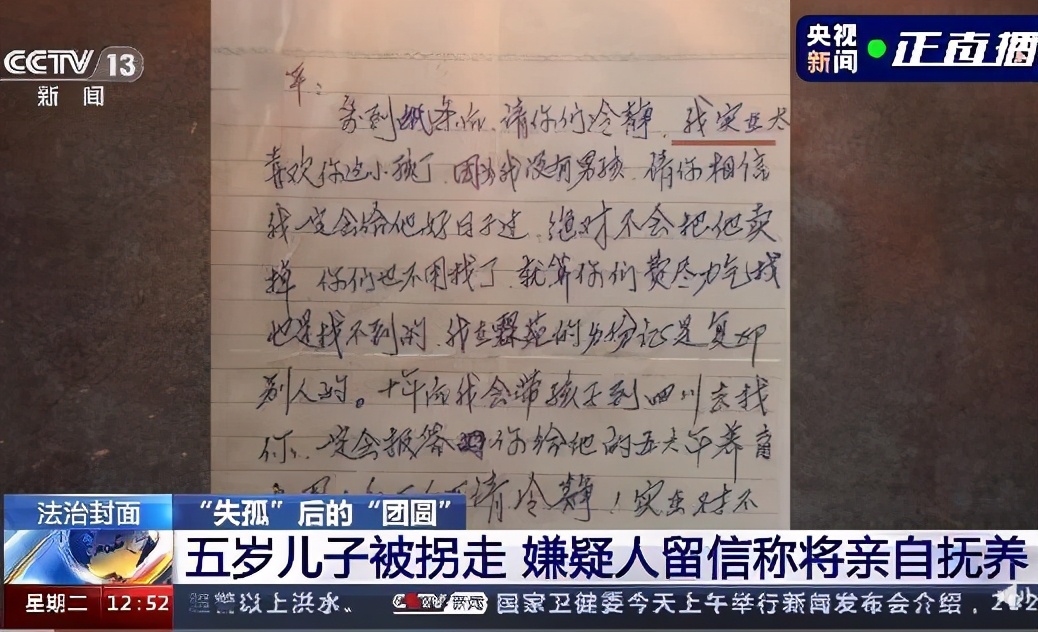 CCTV 13
新闻
央视
新闻
正直播
军:
看到纸条后、请你们冷静、我实在太
喜欢你这小孩了、因为我没有男孩、请你相信
我一定会给他好日子过、绝对不会把他卖
掉、你们也不用找了、就算你们费尽力气找
也是找不到的、我在霖苑的身份证是复印
别人的。十年后我会带孩子到四川去找
你、一定会报答你给他的五六年养育
请冷静!实在对不
法治封面
“失孤”后的“团圆”
五岁儿子被拐走 嫌疑人留信称将亲自抚养
星期二 12:52
以上洪水。 国家卫健委今天上午举行新闻发布会介绍,